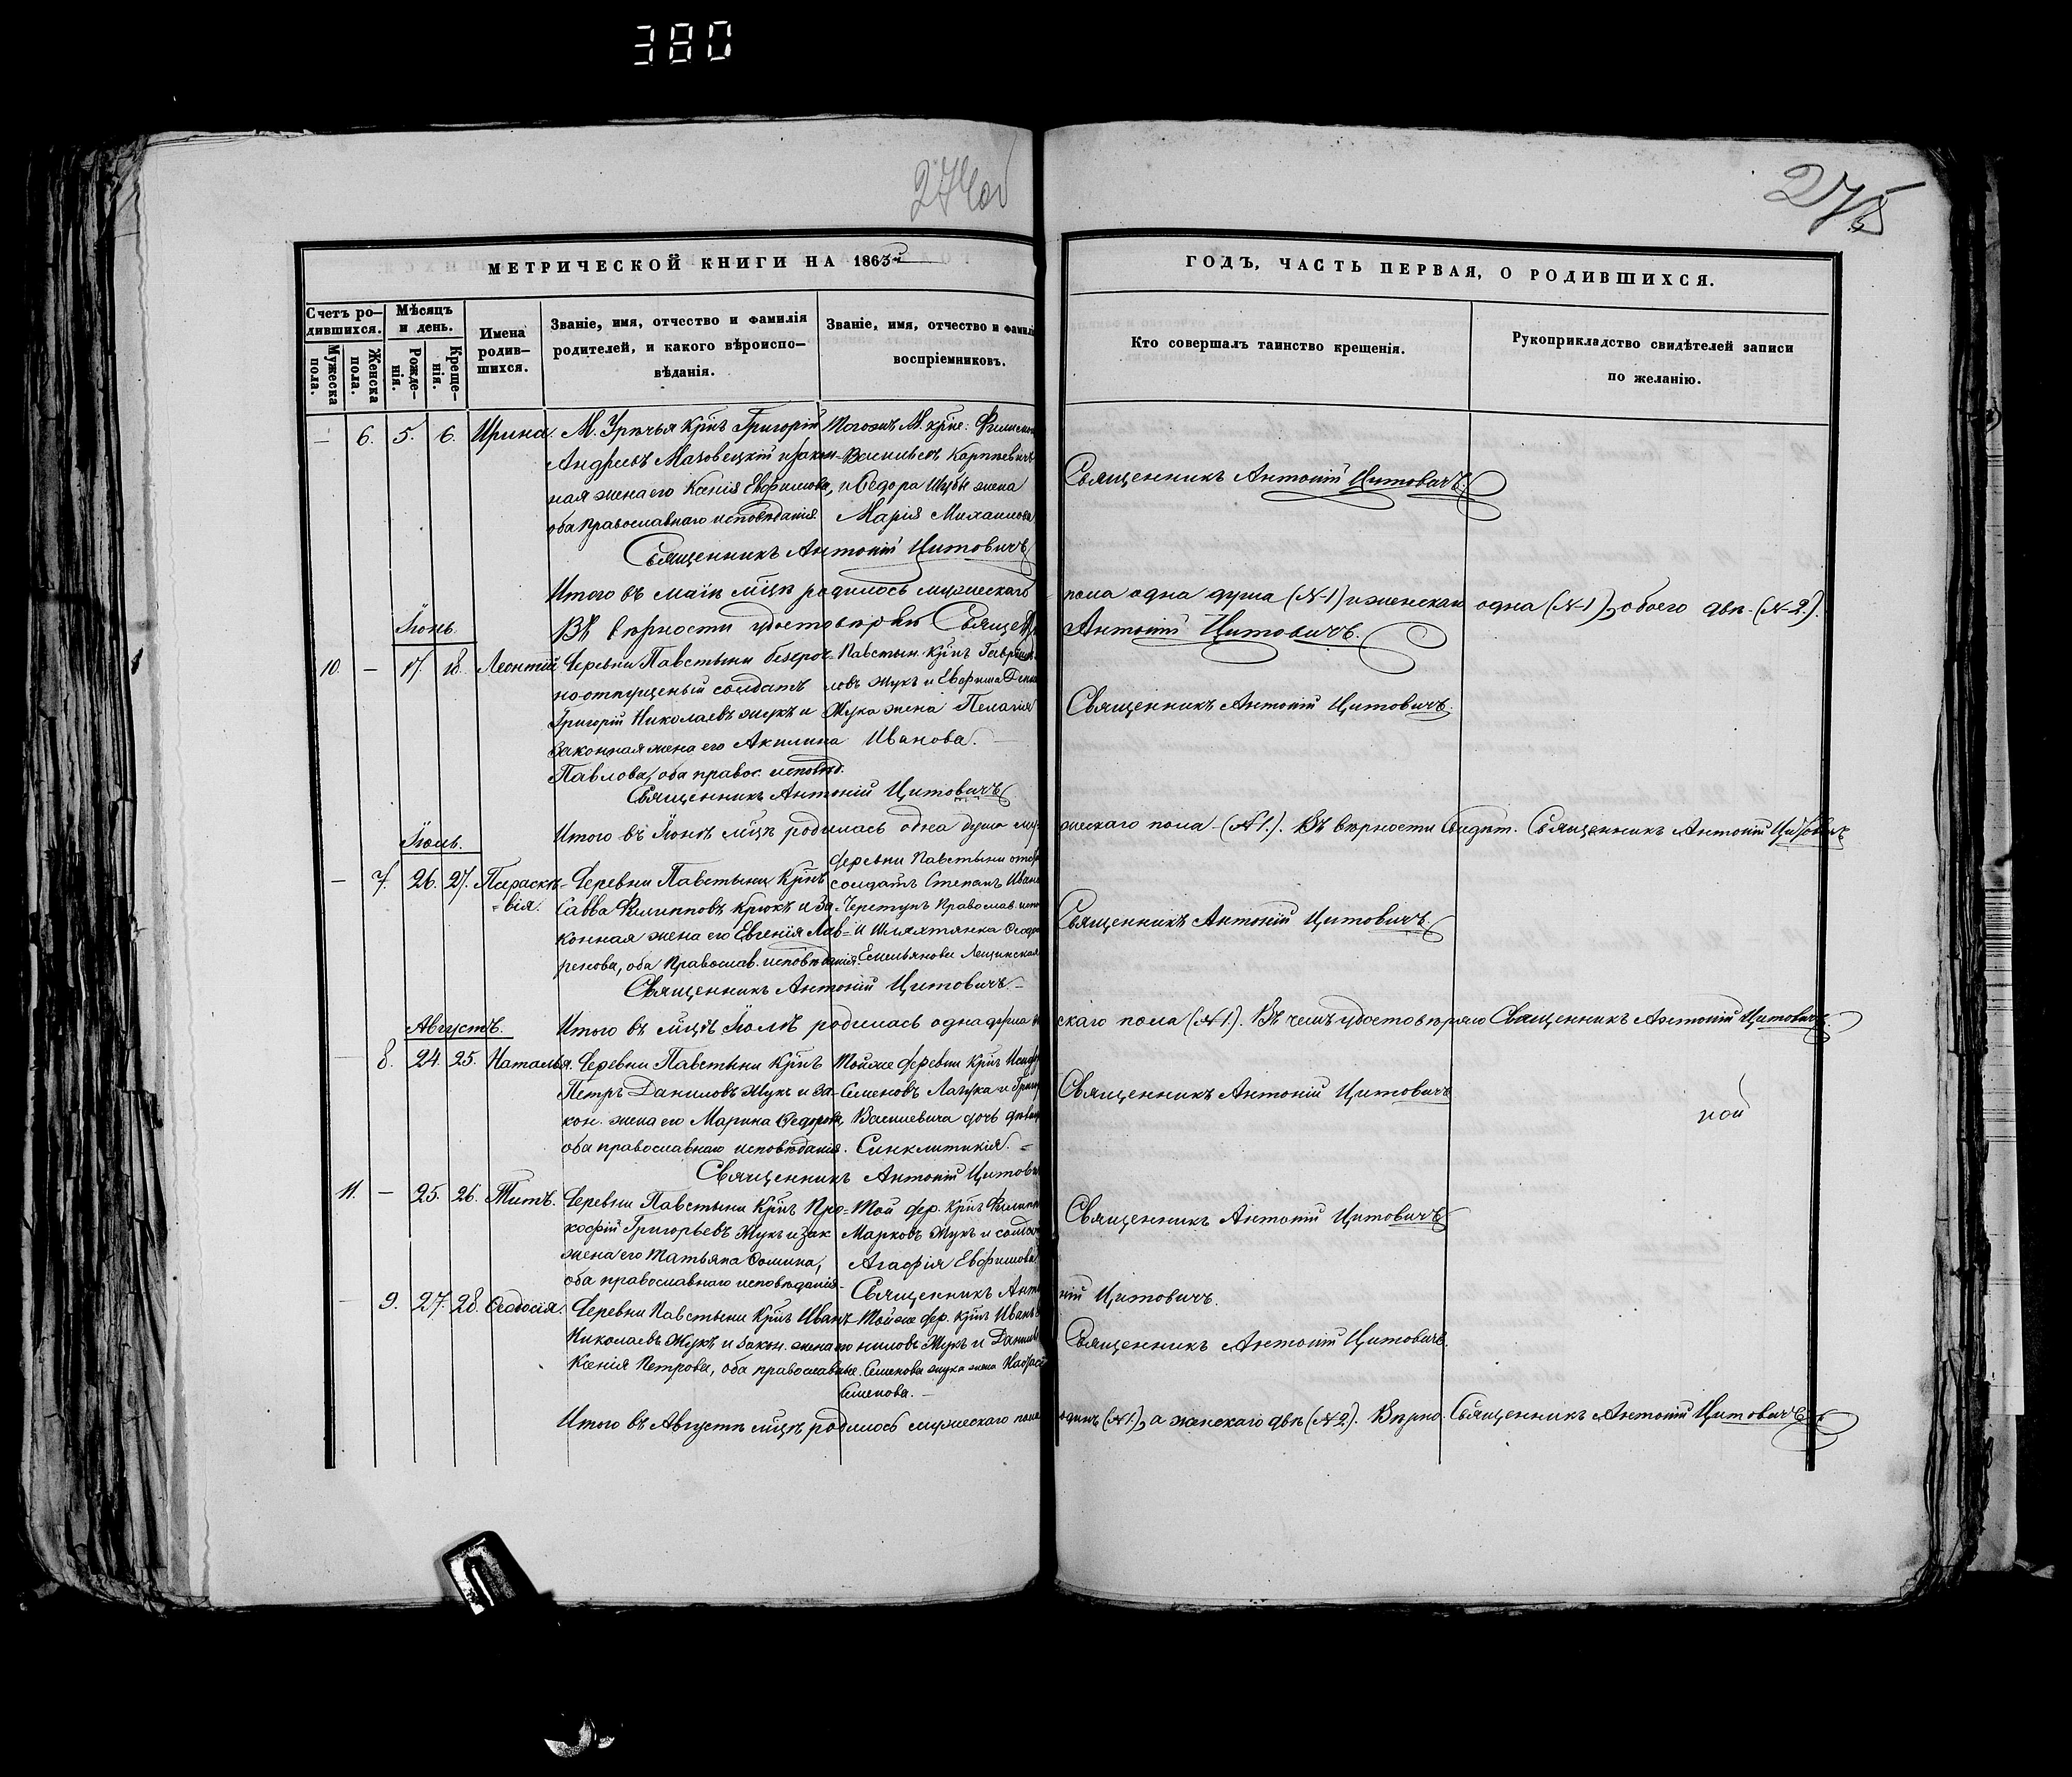 380
274об
275
МЕТРИЧЕСКОЙ КНИГИ НА 1863й
ГОДЪ, ЧАСТЬ ПЕРВАЯ, О РОДИВШИХСЯ.
Счетъ ро-
дившихся.
Мужеска пола.
Женска пола.
Мѣсяцъ
и день.
Рожде-
нія.
Креще-
нія.
Имена
родив-
шихся.
Званіе, имя, отчество и фамилія
родителей, и какого вѣроиспо-
вѣданія.
Званіе, имя, отчество и фамилі
воспріемниковъ.
Кто совершалъ таинство крещенія.
Рукоприкладство свидѣтелей записи
по желанію.
— 6. 5. 6. Ирина. М. Урѣчья Крнъ Григорій Тогожъ М. крне:
Андреевъ Маховецкій и закон- Васильевъ Карпневичъ
ная жена его Ксенія Евфимова, и Ѳедора Шубы жена
оба православнаго исповѣданія Марія Михаилова
Священникъ Антоній Цитовичъ
Священникъ Антоній Цитовичъ
Итого въ маіѣ мцѣ родилось мужескаго пола одна душа (№1) и женскаго одна (№1), обоего двѣ (№2).
Въ вѣрности удостовѣряю Священ Антоній Цитовичъ.
Іюнь.
10. — 17. 18. Леонтій Деревни Павстыни безсроч- Павстын. Крнъ Гавріил
но отпущеный солдатъ ловъ Жукъ и Евфима
Григорій Николаевъ Жукъ и Жука жена Пелагія
законная жена его Акилина Иванова.
Павлова, оба правос. исповѣд.
Священникъ Антоній Цитовичъ
Священникъ Антоній Цитовичъ.
Итого въ Іюнѣ мцѣ родилась одна душа му- жескаго пола (№1.). Въ вѣрности Свидѣт. Священникъ Антоній Цитовичъ
Іюль.
— 7. 26. 27. Параске- Деревни Павстыни Крнъ деревни Павстыни отст
вія. Савва Филипповъ Крюкъ и за- солдатъ Степанъ Ивано
конная жена его Евгенія Лав- Черетунъ Православ. испо
ренова, оба Православ. исповѣданія. и Шляхтянка Ѳеодо
Емельянова Лещинская
Священникъ Антоній Цитовичъ.
Священникъ Антоній Цитовичъ.
Итого въ мцѣ Іюлѣ родилась одна душа жен скаго пола (№1.). Въ чемъ удостовѣряю Священникъ Антоній Цитовичъ.
Августъ.
8. 24. 25. Наталья. Деревни Павстыни Крнъ Тойже деревни Крнъ
Петръ Даниловъ Жукъ и за- Семеновъ Лагука и Григ
кон. жена его Марина Ѳедорова, Василевича дочь дѣвиц
оба православнаго исповѣданія. Синклитикія.
Священникъ Антоній Цитович
Священникъ Антоній Цитовичъ
ной
11. — 25. 26. Титъ. Деревни Павстыни Крнъ Про- Той дер. Крнъ Филипп
кофій Григорьевъ Жукъ и зак Марковъ Жукъ и солда
жена его Татьяна Ѳомина, Агафія Евфимова
оба православнаго исповѣданія. Священникъ Анто ній Цитовичъ.
Священникъ Антоній Цитовичъ
9. 27. 28. Ѳеодосія. Деревни Павстыни Крнъ Иванъ Тойже дер. Крнъ Иванъ
Николаевъ Жукъ и закон. жена его ниловъ Жукъ и Данила
Ксенія Петрова, оба православные. Семенова Жука жена Настас
Семенова.
Священникъ Антоній Цитовичъ.
Итого въ Августѣ мцѣ родилось мужескаго пола одинъ (№1), а женскаго двѣ (№2). Вѣрно. Священникъ Антоній Цитовичъ.